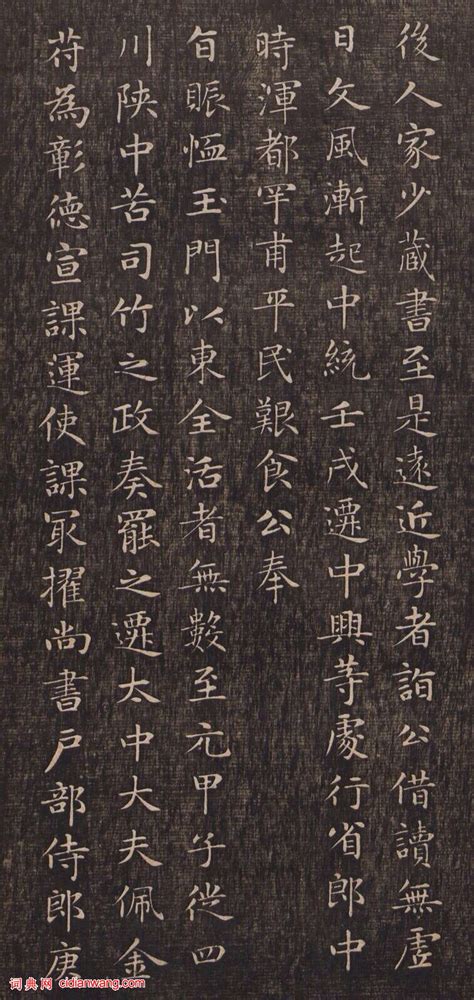 後人家少藏書至是遠近學者詣公借讀無虛
日文風漸起中統壬戌遷中興等處行省郎中
時渾都罕甫平民艱食公奉
旨賑恤玉門以東全活者無數至元甲子從四
川陝中苦司竹之政奏罷之遷太中大夫佩金
符為彰德宣課運使課最擢尚書戶部侍郎庚
词典网 cidianwang.com